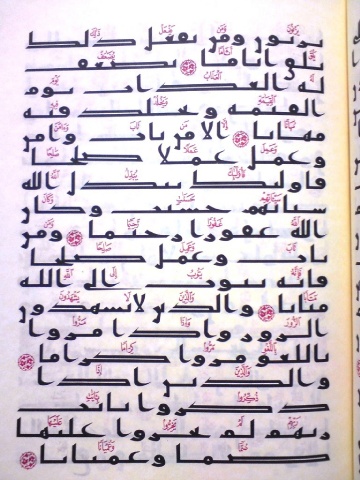 يزنون ومن يفعل ذلك
يلق اثاما يضعف
له العذاب يوم
القيمة ويخلد فيه
مهانا الا من تاب وامن
وعمل عملا صلحا
فاولئك يبدل الله
سياتهم حسنت وكان
الله غفورا رحيما ومن
تاب وعمل صلحا
فانه يتوب الى الله
متابا والذين لا يشهدون
الزور واذا مروا
باللغو مروا كراما
والذين اذا
ذكروا بايت
ربهم لم يخروا عليها
صما وعميانا